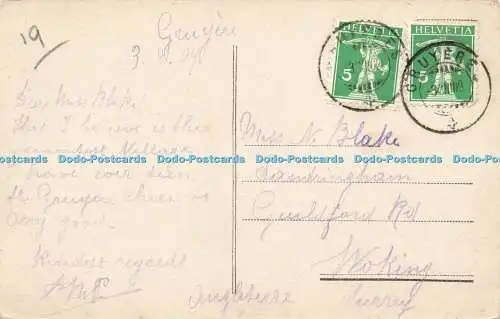 19
Gruyère
HELVETIA
HELVETIA
5
5
GRUYÈRES
Dear Miss Blake
This I believe is the
have ever seen
the Gruyère cheese is
very good.
Kindest regards
Miss N. Blake
Sandringham
Guildford Rd
Woking
Surrey
Angleterre
Dodo-Postcards Dodo-Postcards Dodo-Postcards Dodo-Postcards Dodo-Postcards Dodo-Postcards